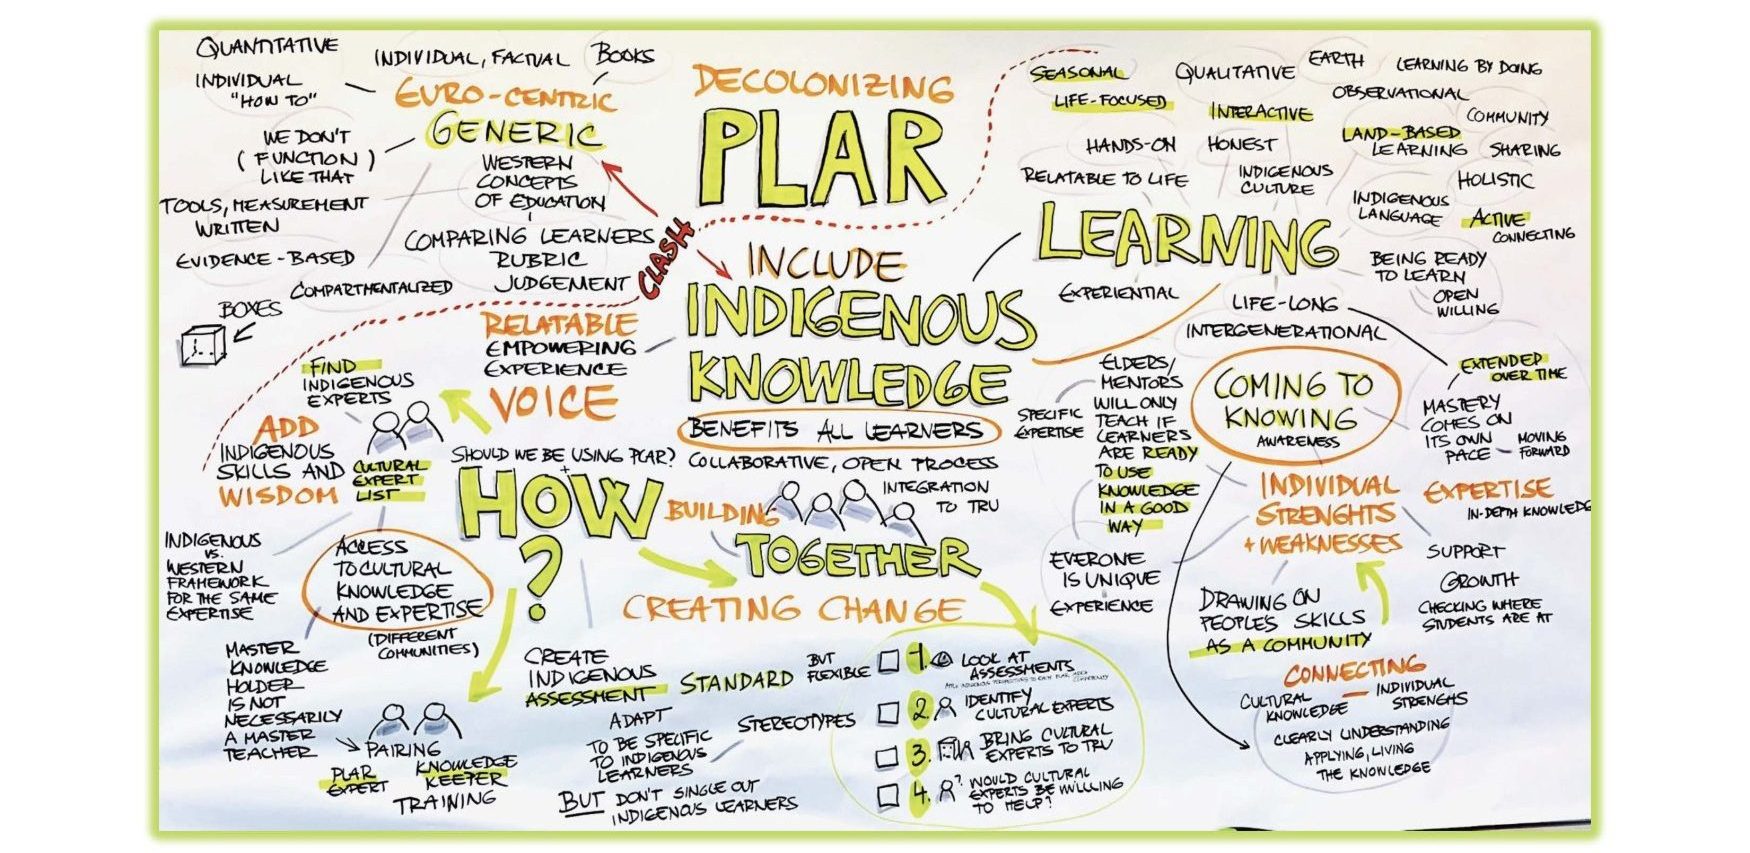 QUANTITATIVE
INDIVIDUAL, FACTUAL
BOOKS
INDIVIDUAL
"HOW TO"
EURO-CENTRIC
GENERIC
WE DON'T
(FUNCTION)
LIKE THAT
WESTERN
CONCEPTS
OF EDUCATION
TOOLS, MEASUREMENT
WRITTEN
COMPARING LEARNERS
RUBRIC
JUDGEMENT
EVIDENCE-BASED
COMPARTMENTALIZED
BOXES
CLASH
DECOLONIZING
PLAR
INCLUDE
INDIGENOUS
KNOWLEDGE
BENEFITS ALL LEARNERS
COLLABORATIVE, OPEN PROCESS
INTEGRATION
TO TRU
BUILDING
TOGETHER
CREATING CHANGE
SEASONAL
LIFE-FOCUSED
QUALITATIVE
EARTH
LEARNING BY DOING
INTERACTIVE
OBSERVATIONAL
COMMUNITY
HANDS-ON
HONEST
LAND-BASED
LEARNING
SHARING
RELATABLE TO LIFE
INDIGENOUS
CULTURE
HOLISTIC
INDIGENOUS
LANGUAGE
ACTIVE
CONNECTING
LEARNING
BEING READY
TO LEARN
OPEN
WILLING
EXPERIENTIAL
LIFE-LONG
INTERGENERATIONAL
RELATABLE
EMPOWERING
EXPERIENCE
VOICE
FIND
INDIGENOUS
EXPERTS
ADD
INDIGENOUS
SKILLS AND
WISDOM
CULTURAL
EXPERT
LIST
SHOULD WE BE USING PLAR?
+
HOW
?
INDIGENOUS
VS.
WESTERN
FRAMEWORK
FOR THE SAME
EXPERTISE
ACCESS
TO CULTURAL
KNOWLEDGE
AND EXPERTISE
(DIFFERENT
COMMUNITIES)
MASTER
KNOWLEDGE
HOLDER
IS NOT
NECESSARILY
A MASTER
TEACHER
PAIRING
PLAR
EXPERT
KNOWLEDGE
KEEPER
TRAINING
CREATE
INDIGENOUS
ASSESSMENT
STANDARD
BUT
FLEXIBLE
ADAPT
TO BE SPECIFIC
TO INDIGENOUS
LEARNERS
STEREOTYPES
BUT DON'T SINGLE OUT
INDIGENOUS LEARNERS
1. LOOK AT
ASSESSMENTS
2. IDENTIFY
CULTURAL EXPERTS
3. BRING CULTURAL
EXPERTS TO TRU
4. ? WOULD CULTURAL
EXPERTS BE WILLING
TO HELP?
SPECIFIC
EXPERTISE
ELDERS/
MENTORS
WILL ONLY
TEACH IF
LEARNERS
ARE READY
TO USE
KNOWLEDGE
IN A GOOD
WAY
EVERONE
IS UNIQUE
EXPERIENCE
COMING TO
KNOWING
AWARENESS
EXTENDED
OVER TIME
MASTERY
COMES ON
ITS OWN
PACE - MOVING
FORWARD
INDIVIDUAL
STRENGHTS
+ WEAKNESSES
EXPERTISE
IN-DEPTH KNOWLEDGE
SUPPORT
GROWTH
CHECKING WHERE
STUDENTS ARE AT
DRAWING ON
PEOPLE'S SKILLS
AS A COMMUNITY
CONNECTING
CULTURAL
KNOWLEDGE
— INDIVIDUAL
STRENGHS
CLEARLY UNDERSTANDING
APPLYING, LIVING
THE KNOWLEDGE